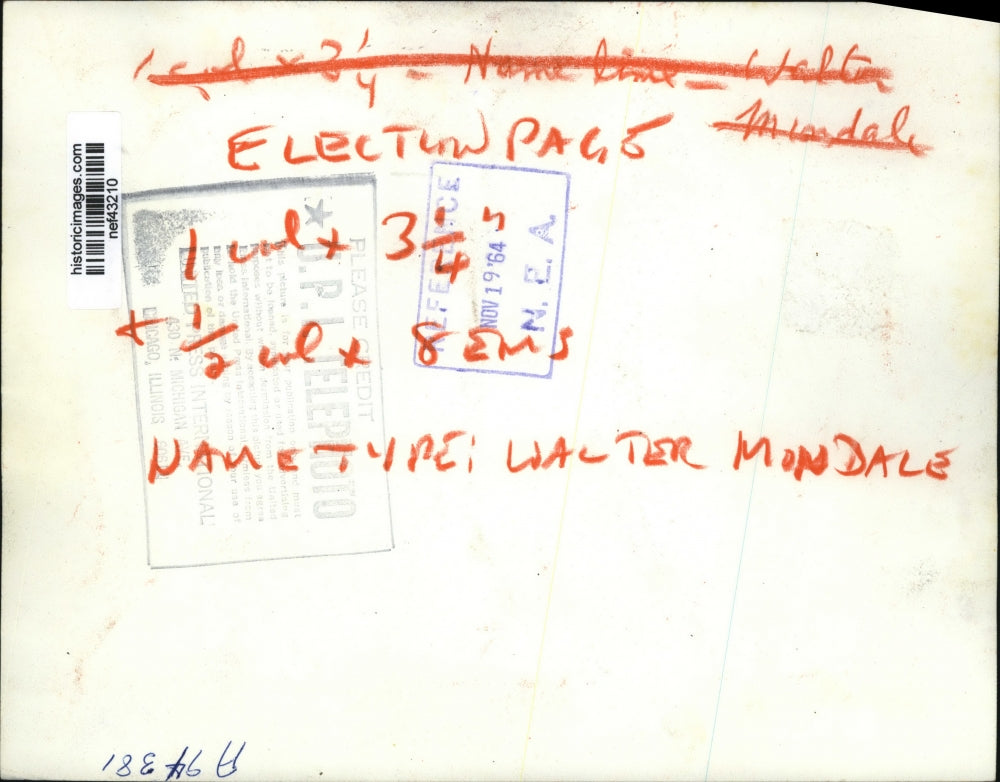 1 col x 3 1/4 - Name line - Walter
Mondale
ELECTION PAGE
1 col x 3 1/4"
+ 1/2 col x 8 EMS
NAME TYPE: WALTER MONDALE
historicimages.com
nef43210
PLEASE CREDIT
U.P.I. TELEPHOTO
This picture is for
UNITED PRESS INTERNATIONAL
430 N. MICHIGAN AVE
CHICAGO, ILLINOIS
REFERENCE
NOV 19 '64
N. E. A.
A 94 381